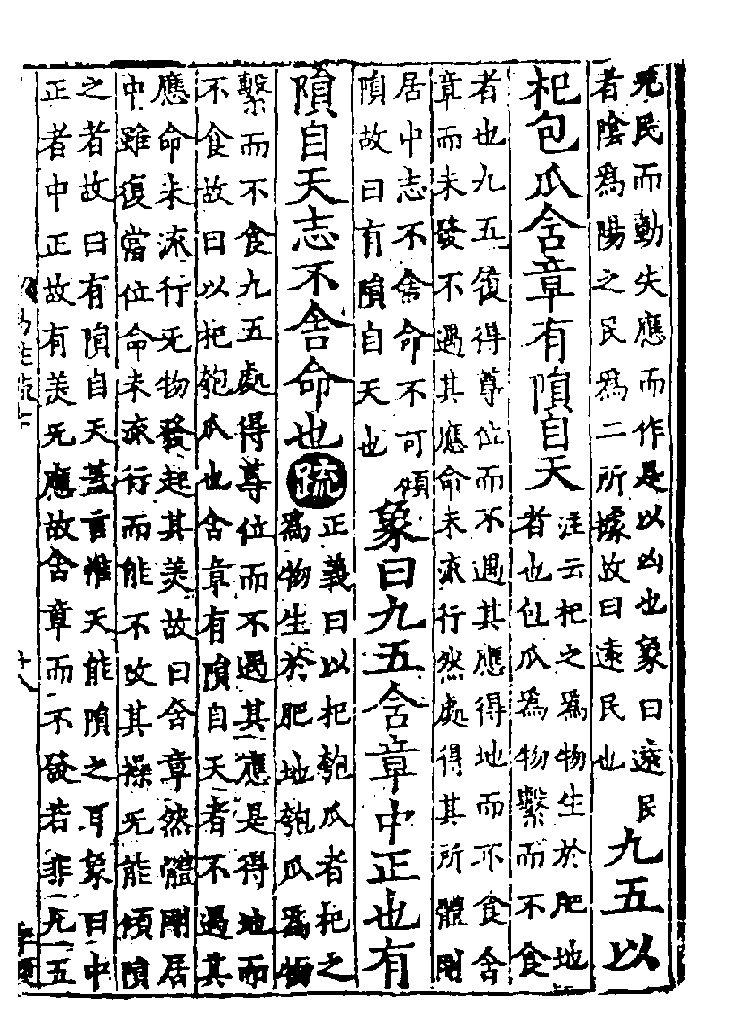 无民而動失應而作是以凶也象曰遠民
者陰爲陽之民爲二所據故曰遠民也
九五以
杞包瓜含章有隕自天
注云杞之爲物生於肥地
者也包瓜爲物繫而不食
者也九五履得尊位而不遇其應得地而不食含
章而未發不遇其應命未流行然處得其所體剛
居中志不舍命不可傾
隕故曰有隕自天也
象曰九五含章中正也有
隕自天志不舍命也
疏
正義曰以杞匏瓜者杞之
爲物生於肥地匏瓜爲物
繫而不食九五處得尊位而不遇其應是得地而
不食故曰以杞匏瓜也含章有隕自天者不遇其
應命未流行无物發起其美故曰含章然體剛居
中雖復當位命未流行而能不改其操无能傾隕
之者故曰有隕自天蓋言惟天能隕之耳象曰中
正者中正故有美无應故含章而不發若非无五
十八